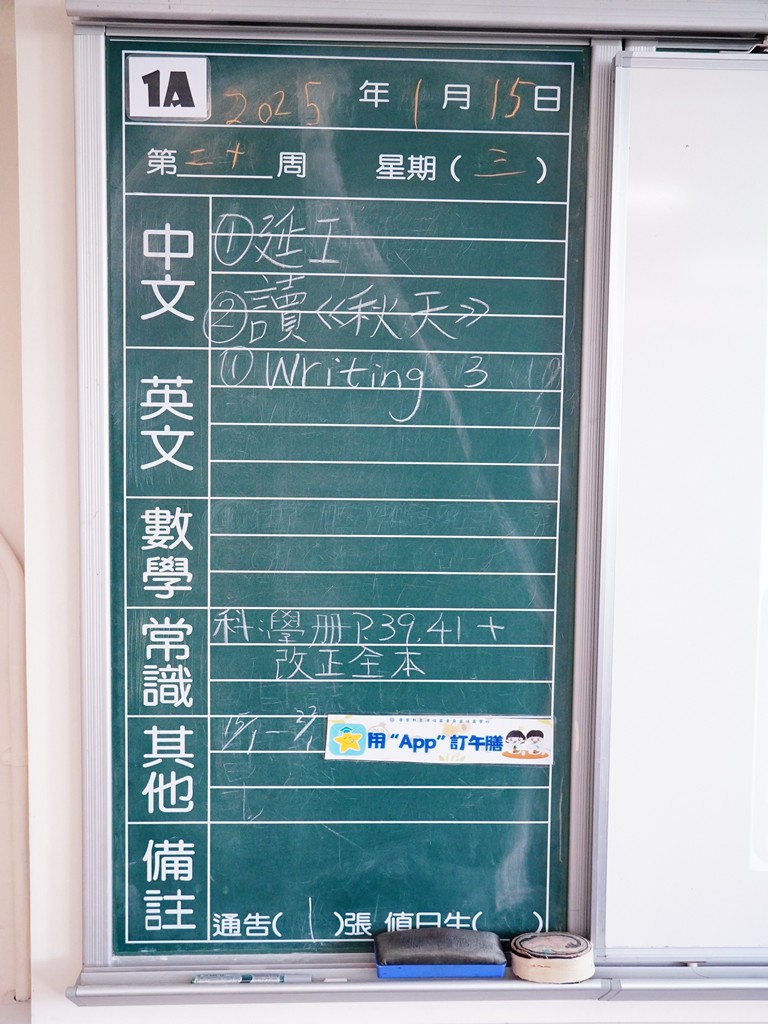 1A 2025 年 1 月 15 日
第 二十 周 星期 ( 三 )
中文
① 延工
② 讀《秋天》
英文
① Writing 3
數學
常識
科:學册 P.39.41 +
改正全本
其他
15/1 — 22/1
用“App”訂午膳
備註
通告( 1 )張 值日生( )